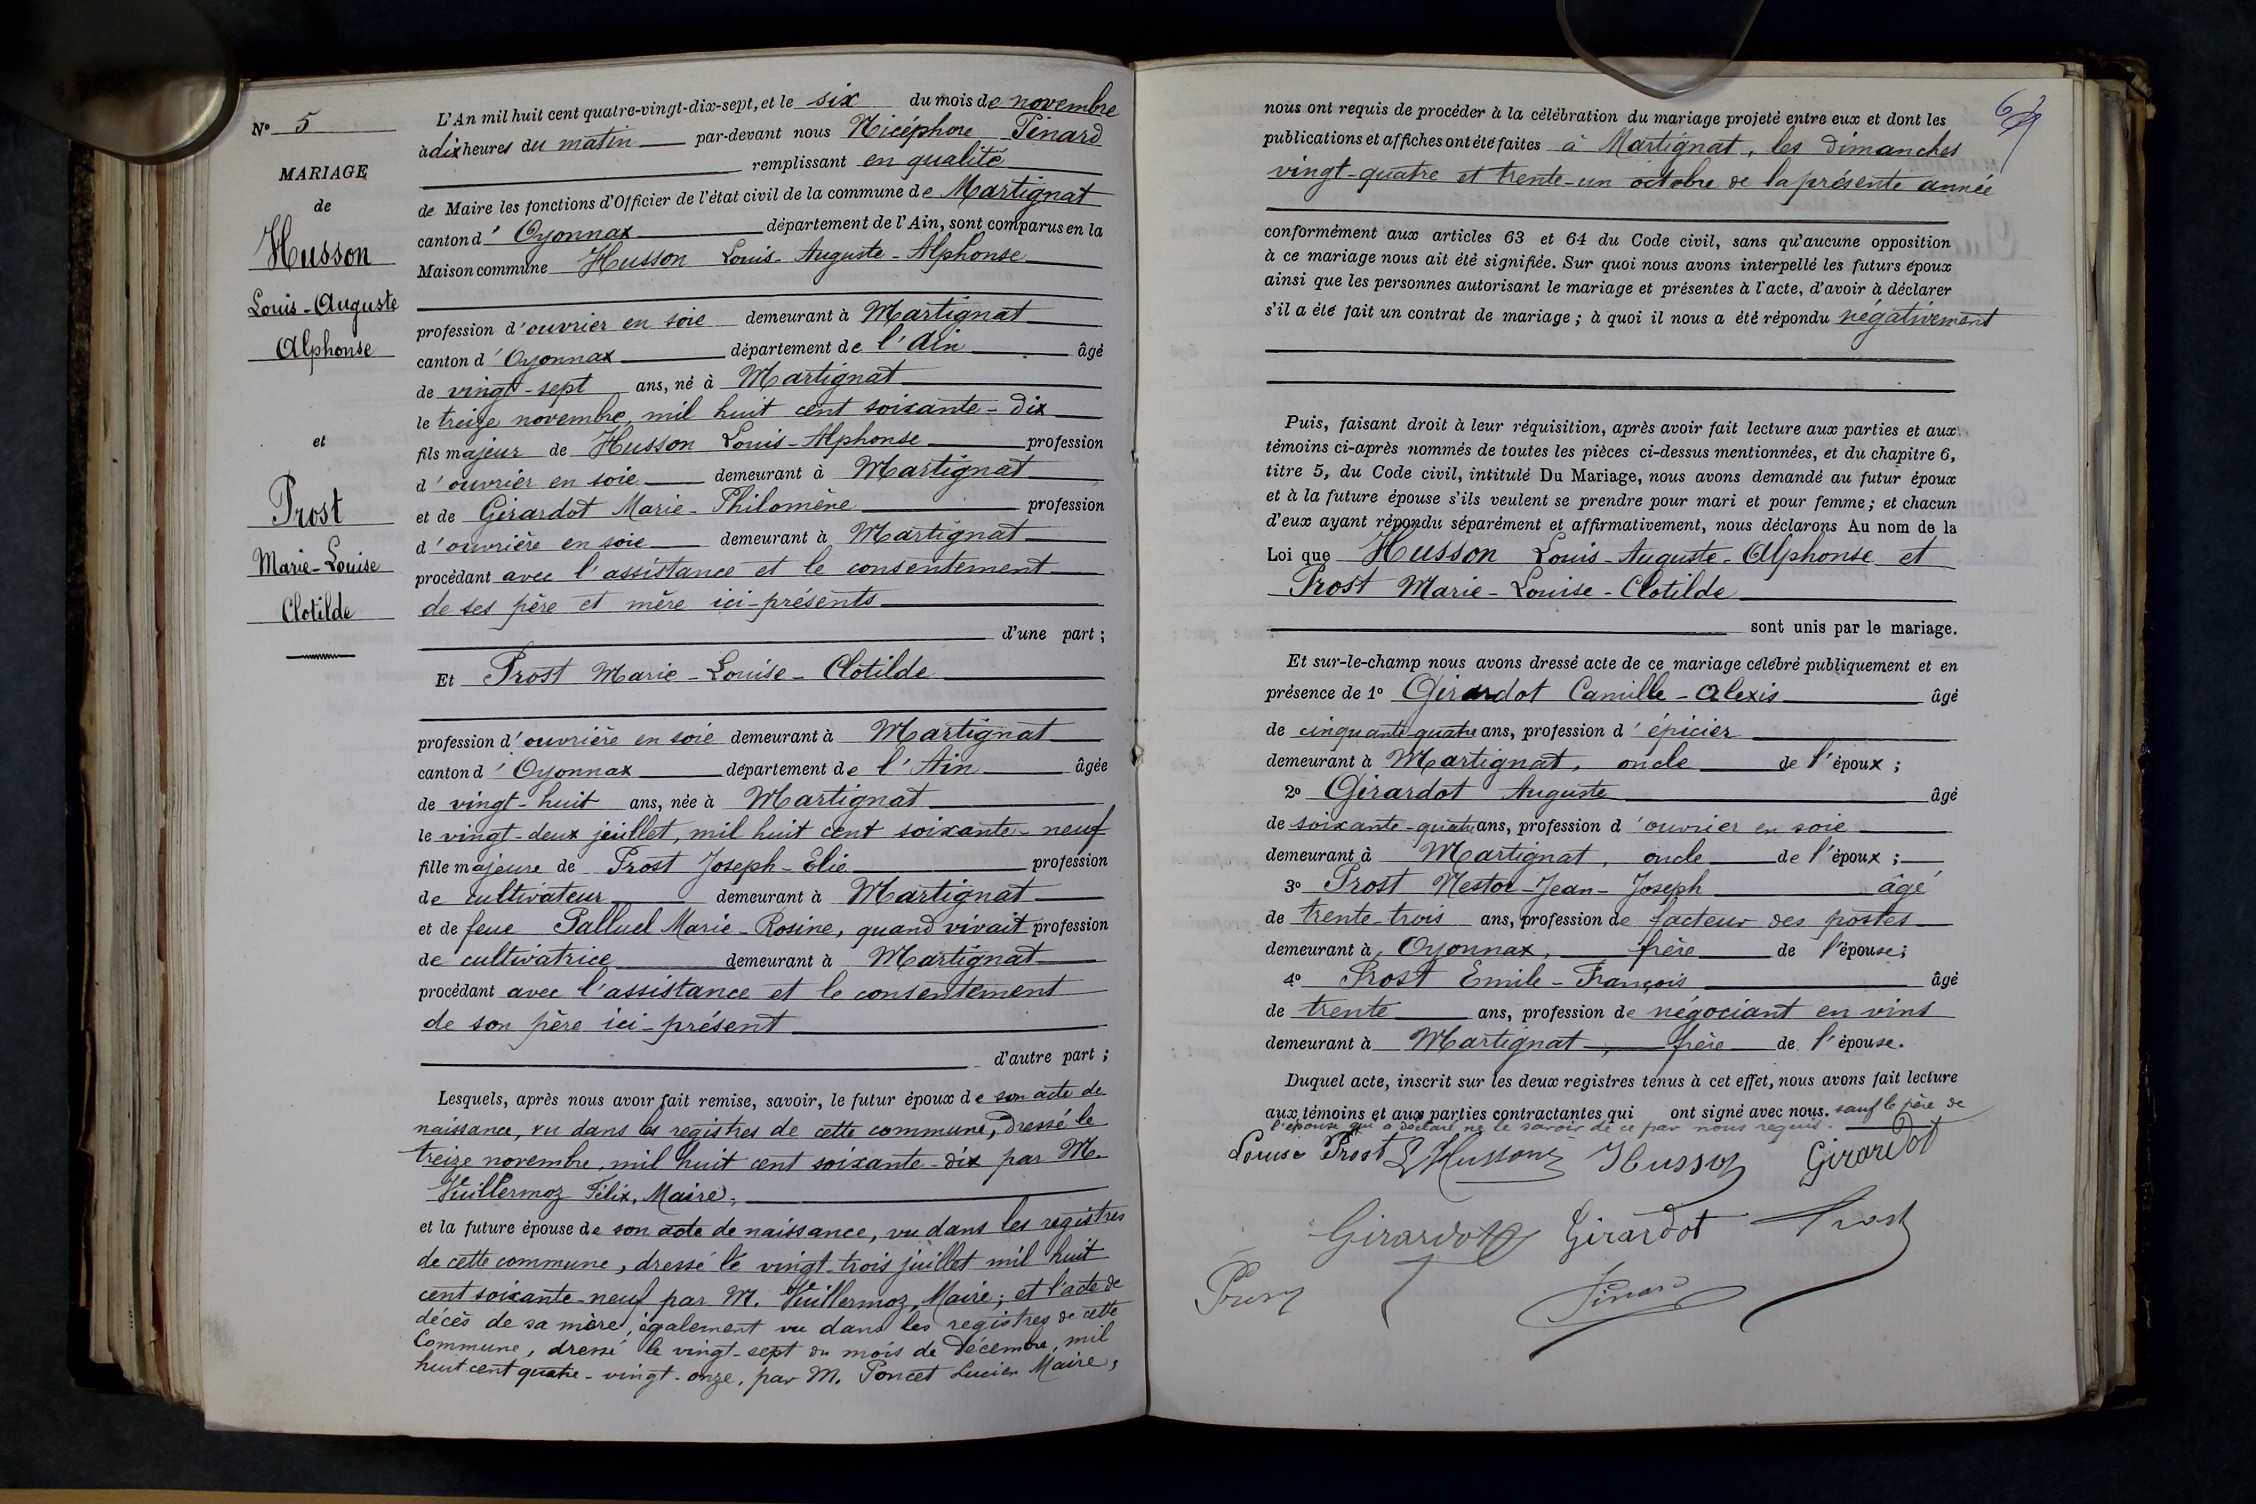 N° 5
MARIAGE
de
Husson
Louis-Auguste
Alphonse
et
Prost
Marie-Louise
Clotilde
L'An mil huit cent quatre-vingt-dix-sept, et le six du mois de novembre
à dix heures du matin par-devant nous Nicéphore Pinard
remplissant en qualité
de Maire les fonctions d'Officier de l'état civil de la commune de Martignat
canton d'Oyonnax département de l'Ain, sont comparus en la
Maison commune Husson Louis-Auguste-Alphonse
profession d'ouvrier en soie demeurant à Martignat
canton d'Oyonnax département de l'Ain âgé
de vingt-sept ans, né à Martignat
le treize novembre, mil huit cent soixante-dix
fils majeur de Husson Louis-Alphonse profession
d'ouvrier en soie demeurant à Martignat
et de Girardot Marie-Philomène profession
d'ouvrière en soie demeurant à Martignat
procédant avec l'assistance et le consentement
de ses père et mère ici-présents
d'une part ;
Et Prost Marie-Louise-Clotilde
profession d'ouvrière en soie demeurant à Martignat
canton d'Oyonnax département de l'Ain âgée
de vingt-huit ans, née à Martignat
le vingt-deux juillet, mil huit cent soixante-neuf
fille majeure de Prost Joseph-Elie profession
de cultivateur demeurant à Martignat
et de feue Palluel Marie-Rosine, quand vivait profession
de cultivatrice demeurant à Martignat
procédant avec l'assistance et le consentement
de son père ici-présent
d'autre part ;
Lesquels, après nous avoir fait remise, savoir, le futur époux de son acte de
naissance, vu dans les registres de cette commune, dressé le
treize novembre, mil huit cent soixante-dix par M.
Vuillermoz Félix, Maire;
et la future épouse de son acte de naissance, vu dans les registres
de cette commune, dressé le vingt-trois juillet mil huit
cent soixante-neuf par M. Vuillermoz, Maire; et l'acte de
décès de sa mère, également vu dans les registres de cette
Commune, dressé le vingt-sept du mois de décembre, mil
huit cent quatre-vingt-onze, par M. Poncet Lucien Maire,
nous ont requis de procéder à la célébration du mariage projeté entre eux et dont les
publications et affiches ont été faites à Martignat, les dimanches
vingt-quatre et trente-un octobre de la présente année
conformément aux articles 63 et 64 du Code civil, sans qu'aucune opposition
à ce mariage nous ait été signifiée. Sur quoi nous avons interpellé les futurs époux
ainsi que les personnes autorisant le mariage et présentes à l'acte, d'avoir à déclarer
s'il a été fait un contrat de mariage ; à quoi il nous a été répondu négativement
Puis, faisant droit à leur réquisition, après avoir fait lecture aux parties et aux
témoins ci-après nommés de toutes les pièces ci-dessus mentionnées, et du chapitre 6,
titre 5, du Code civil, intitulé Du Mariage, nous avons demandé au futur époux
et à la future épouse s'ils veulent se prendre pour mari et pour femme ; et chacun
d'eux ayant répondu séparément et affirmativement, nous déclarons Au nom de la
Loi que Husson Louis-Auguste-Alphonse et
Prost Marie-Louise-Clotilde
sont unis par le mariage.
Et sur-le-champ nous avons dressé acte de ce mariage célébré publiquement et en
présence de 1° Girardot Camille-Alexis âgé
de cinquante-quatre ans, profession d'épicier
demeurant à Martignat, oncle de l'époux ;
2° Girardot Auguste âgé
de soixante-quatre ans, profession d'ouvrier en soie
demeurant à Martignat, oncle de l'époux ;
3° Prost Nestor-Jean-Joseph âgé
de trente-trois ans, profession de facteur des postes
demeurant à Oyonnax, frère de l'épouse ;
4° Prost Emile-François âgé
de trente ans, profession de négociant en vins
demeurant à Martignat, frère de l'épouse.
Duquel acte, inscrit sur les deux registres tenus à cet effet, nous avons fait lecture
aux témoins et aux parties contractantes qui ont signé avec nous. sauf le père de
l'épouse qui a déclaré ne le savoir de ce par nous requis.
Louise Prost L Husson Husson Girardot
Girardot Girardot Prost
Pinard